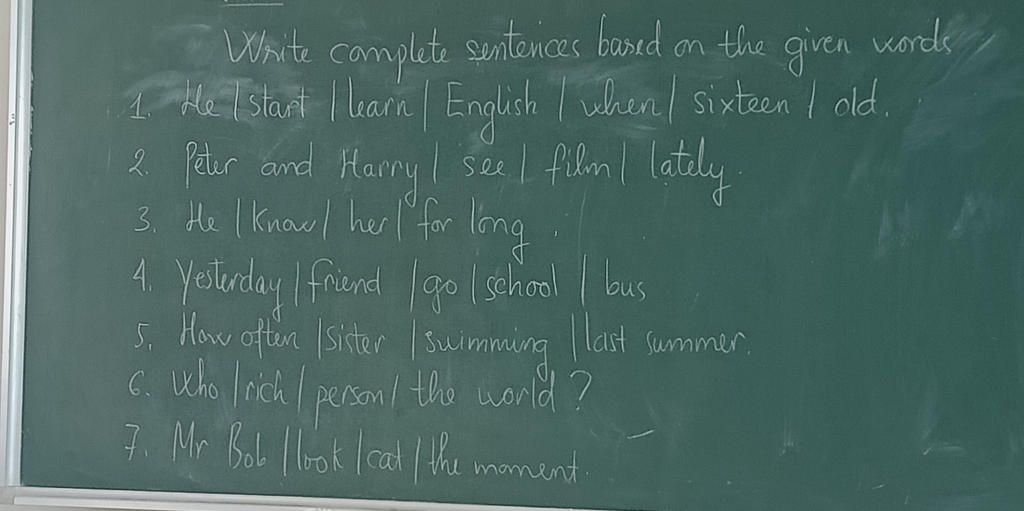 Write complete sentences based on the given words
1. He / start / learn / English / when / sixteen / old.
2. Peter and Harry / see / film / lately.
3. He / know / her / for long.
4. Yesterday / friend / go / school / bus
5. How often / sister / swimming / last summer.
6. Who / rich / person / the world?
7. Mr Bob / look / cat / the moment.